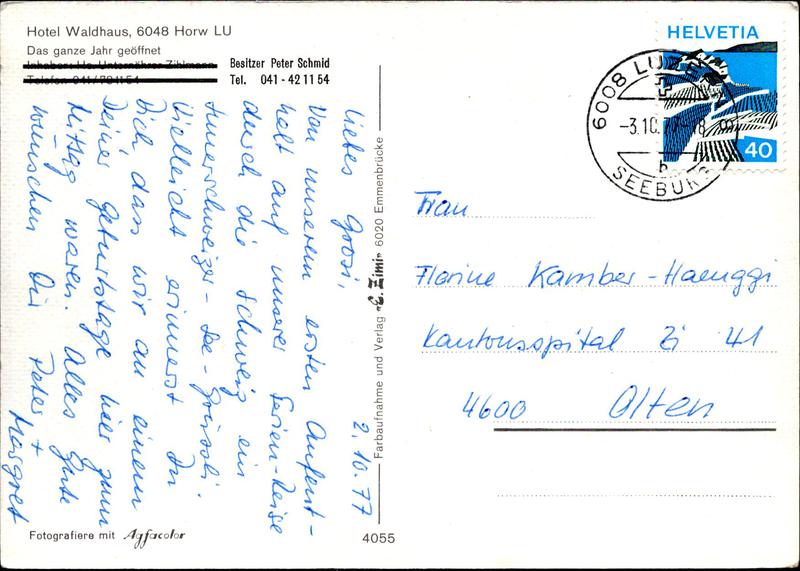 Hotel Waldhaus, 6048 Horw LU
Das ganze Jahr geöffnet
Inhaber: Hs. Unternährer-Zihlmann
Telefon 041/791154
Besitzer Peter Schmid
Tel. 041 - 42 11 54
2.10.77
Liebes Grosi,
Von unserem ersten Aufent-
halt auf unserer Ferien-Reise
durch die Schweiz ein
Innerschweizer-See-Grüssli.
Vielleicht erinnerst Du
Dich, dass wir an einem
Deiner Geburtstage hier zum
Mittag waren. Alles Gute
wünschen Dir Peter +
Margret
Farbaufnahme und Verlag «C. Zimi» 6020 Emmenbrücke
Fotografiere mit Agfacolor
4055
HELVETIA
40
6008 LUZERN
-3.10.77-18
b
SEEBURG
Frau
Florine Kamber-Haenggi
Kantonsspital Zi 41
4600 Olten